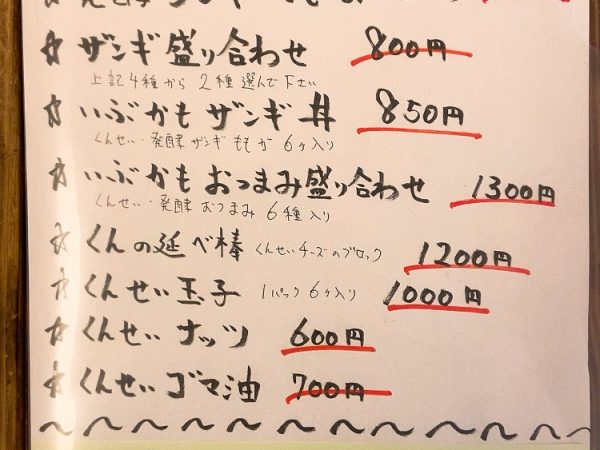 ☆ ザンギ盛り合わせ 800円
上記4種から2種選んで下さい
☆ いぶかもザンギ丼 850円
くんせい・発酵ザンギももか6ヶ入り
☆ いぶかもおつまみ盛り合わせ 1300円
くんせい・発酵おつまみ6種入り
☆ くんの延べ棒 くんせいチーズのブロック 1200円
☆ くんせい玉子 1パック6ヶ入り 1000円
☆ くんせいナッツ 600円
☆ くんせいゴマ油 700円